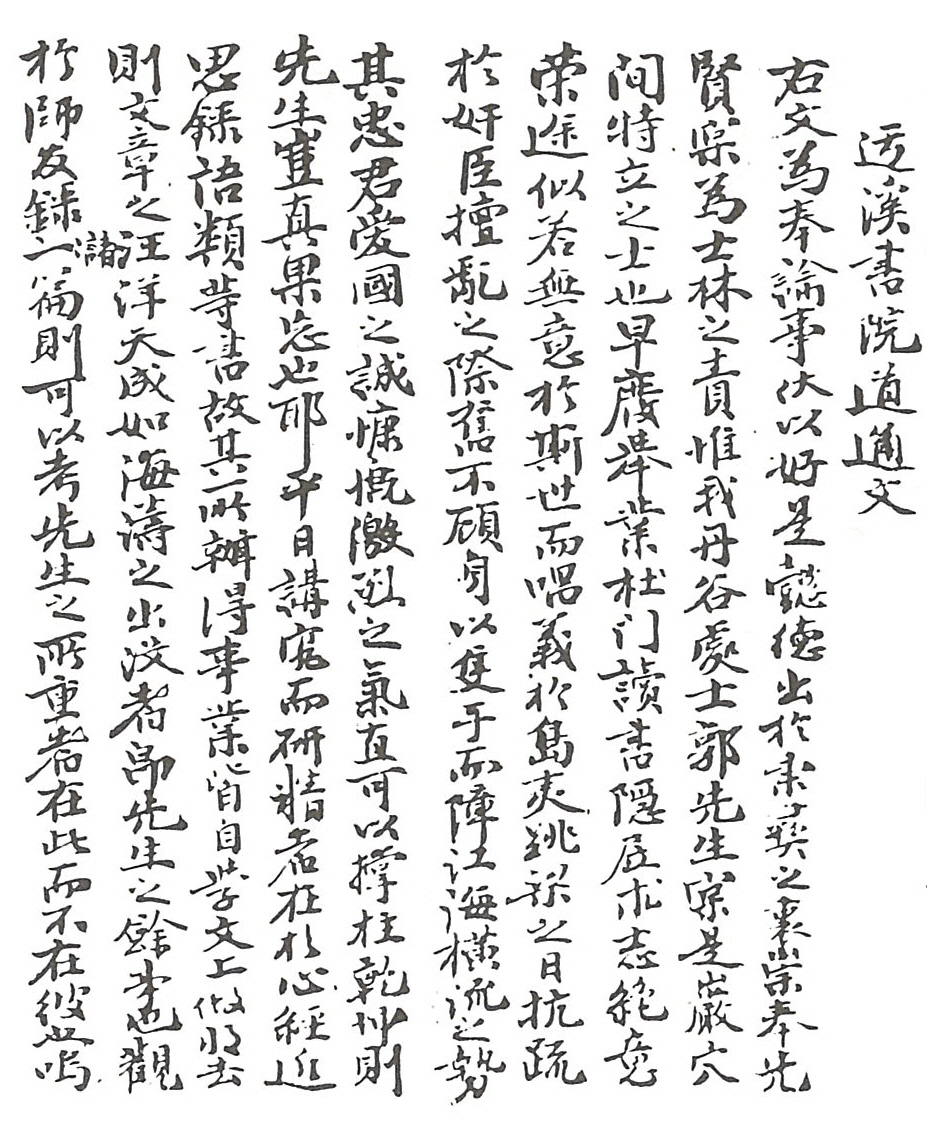 迂溪書院道通文
右文為奉諭事伏以好是懿德出於秉彝之衷崇奉先
賢寔為士林之責惟我丹谷處士郭先生寔是巖穴
間特立之士也早廢擧業杜门讀書隱居求志絶意
荣途似若無意於斯世而唱義於島夷跳梁之日抗疏
於奸臣擅亂之際奮不顧身以隻手而障江海橫流之勢
其忠君愛國之誠慷慨激烈之氣直可以撐柱乾坤則
先生豈真果忘也耶平日講究而研精者在於心經近
思錄語類等書故其所辦得事業皆自學文上做将去
則文章之汪洋天成如海濤之出沒者即先生之餘事也觀
於師友錄一篇則可以考先生之所重者在此而不在彼也嗚